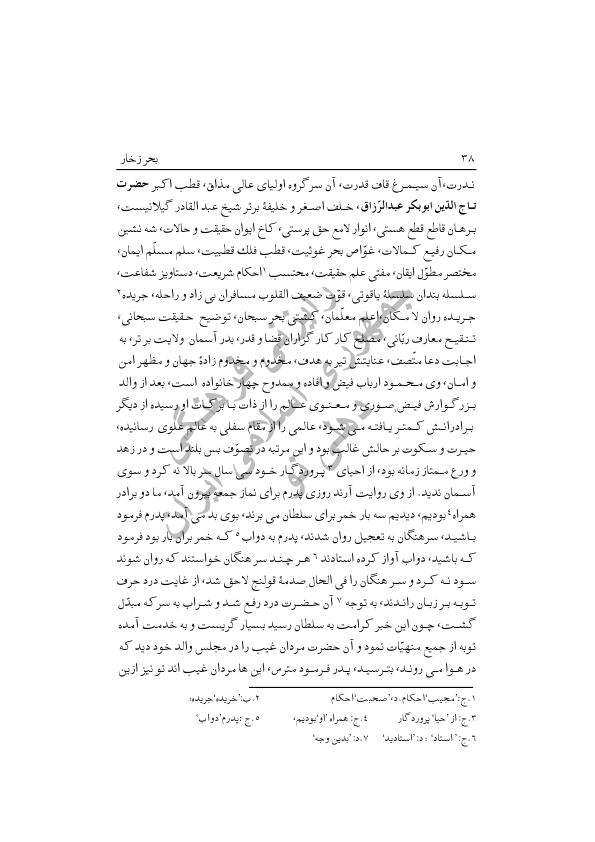 ۳۸ بحر زخار
ندرت، آن سیمرغ قاف قدرت، آن سرگروه اولیای عالی مذاق، قطب اکبر حضرت
تاج الدّین ابوبکر عبدالرّزاق، خلف اصغر و خلیفهٔ برتر شیخ عبد القادر گیلانیست،
برهان قاطع قطع هستی، انوار لامع حق پرستی، کاخ ایوان حقیقت و حالات، شه نشین
مکان رفیع کمالات، غوّاص بحر غوثیت، قطب فلك قطبیت، سلم مسلّم ایمان،
مختصر مطوّل ایقان، مفتی علم حقیقت، محتسب ۱احکام شریعت، دستاویز شفاعت،
سلسله بندان سلسلهٔ یاقوتی، قوّت ضعیف القلوب مسافران نی زاد و راحله، جریده۲
جریده روان لا مکان، اعلم معلّمان، کشتی بحر سبحان، توضیح حقیقت سبحانی،
تنقیح معارف ربّانی، مصلح کار کار گزاران قضا و قدر، بدر آسمان ولایت برتر، به
اجابت دعا متّصف، عنایتش تیر به هدف، مخدوم و مخدوم زادهٔ جهان و مظهر امن
و امان، وی محمود ارباب فیض و افاده و ممدوح چهار خانواده است، بعد از والد
بزرگوارش فیض صوری و معنوی عالم را از ذات با برکات او رسیده از دیگر
برادرانش کمتر یافته می شود، عالمی را از مقام سفلی به عالم علوی رسانیده،
حیرت و سکوت بر حالش غالب بود و این مرتبه در تصوّف بس بلند است و در زهد
و ورع ممتاز زمانه بود، از احیای ۳ پروردگار خود سی سال سر بالا نه کرد و سوی
آسمان ندید. از وی روایت آرند روزی پدرم برای نماز جمعه بیرون آمد، ما دو برادر
همراه۴ بودیم، دیدیم سه بار خمر برای سلطان می برند، بوی بد می آمد، پدرم فرمود
باشید، سرهنگان به تعجیل روان شدند، پدرم به دواب ۵ که خمر بران بار بود فرمود
که باشید، دواب آواز کرده استادند ۶ هر چند سر هنگان خواستند که روان شوند
سود نه کرد و سر هنگان را فی الحال صدمهٔ قولنج لاحق شد، از غایت درد حرف
توبه بر زبان راندند، به توجه ۷ آن حضرت درد رفع شد و شراب به سرکه مبدّل
گشت، چون این خبر کرامت به سلطان رسید بسیار گریست و به خدمت آمده
توبه از جمیع منهیّات نمود و آن حضرت مردان غیب را در مجلس والد خود دید که
در هوا می روند، بترسید، پدر فرمود مترس، این ها مردان غیب اند تو نیز ازین
۱.ج: 'مجیب' احکام. د، 'صحبت' احکام ۲.ب: 'خریده' جریده؛
۳.ج: از 'حیا' پروردگار ۴.ج: همراه 'او' بودیم، ۵.ج: پدرم 'دواب'
۶.ج: 'استاد' ؛ د: 'استادید' ۷.د: 'بدین وجه'
رایزنی فرهنگی
جمهوری اسلامی ایران
دهلی نو